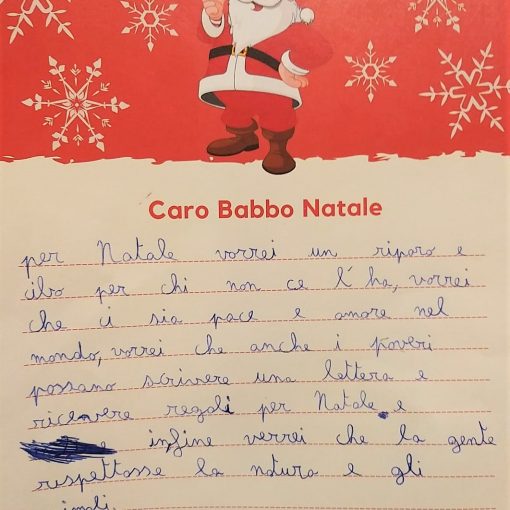 Caro Babbo Natale
per Natale vorrei un riparo e
cibo per chi non ce l'ha, vorrei
che ci sia pace e amore nel
mondo, vorrei che anche i poveri
possano scrivere una lettera e
ricevere regali per Natale e
infine verrei che la gente
rispettasse la natura e gli